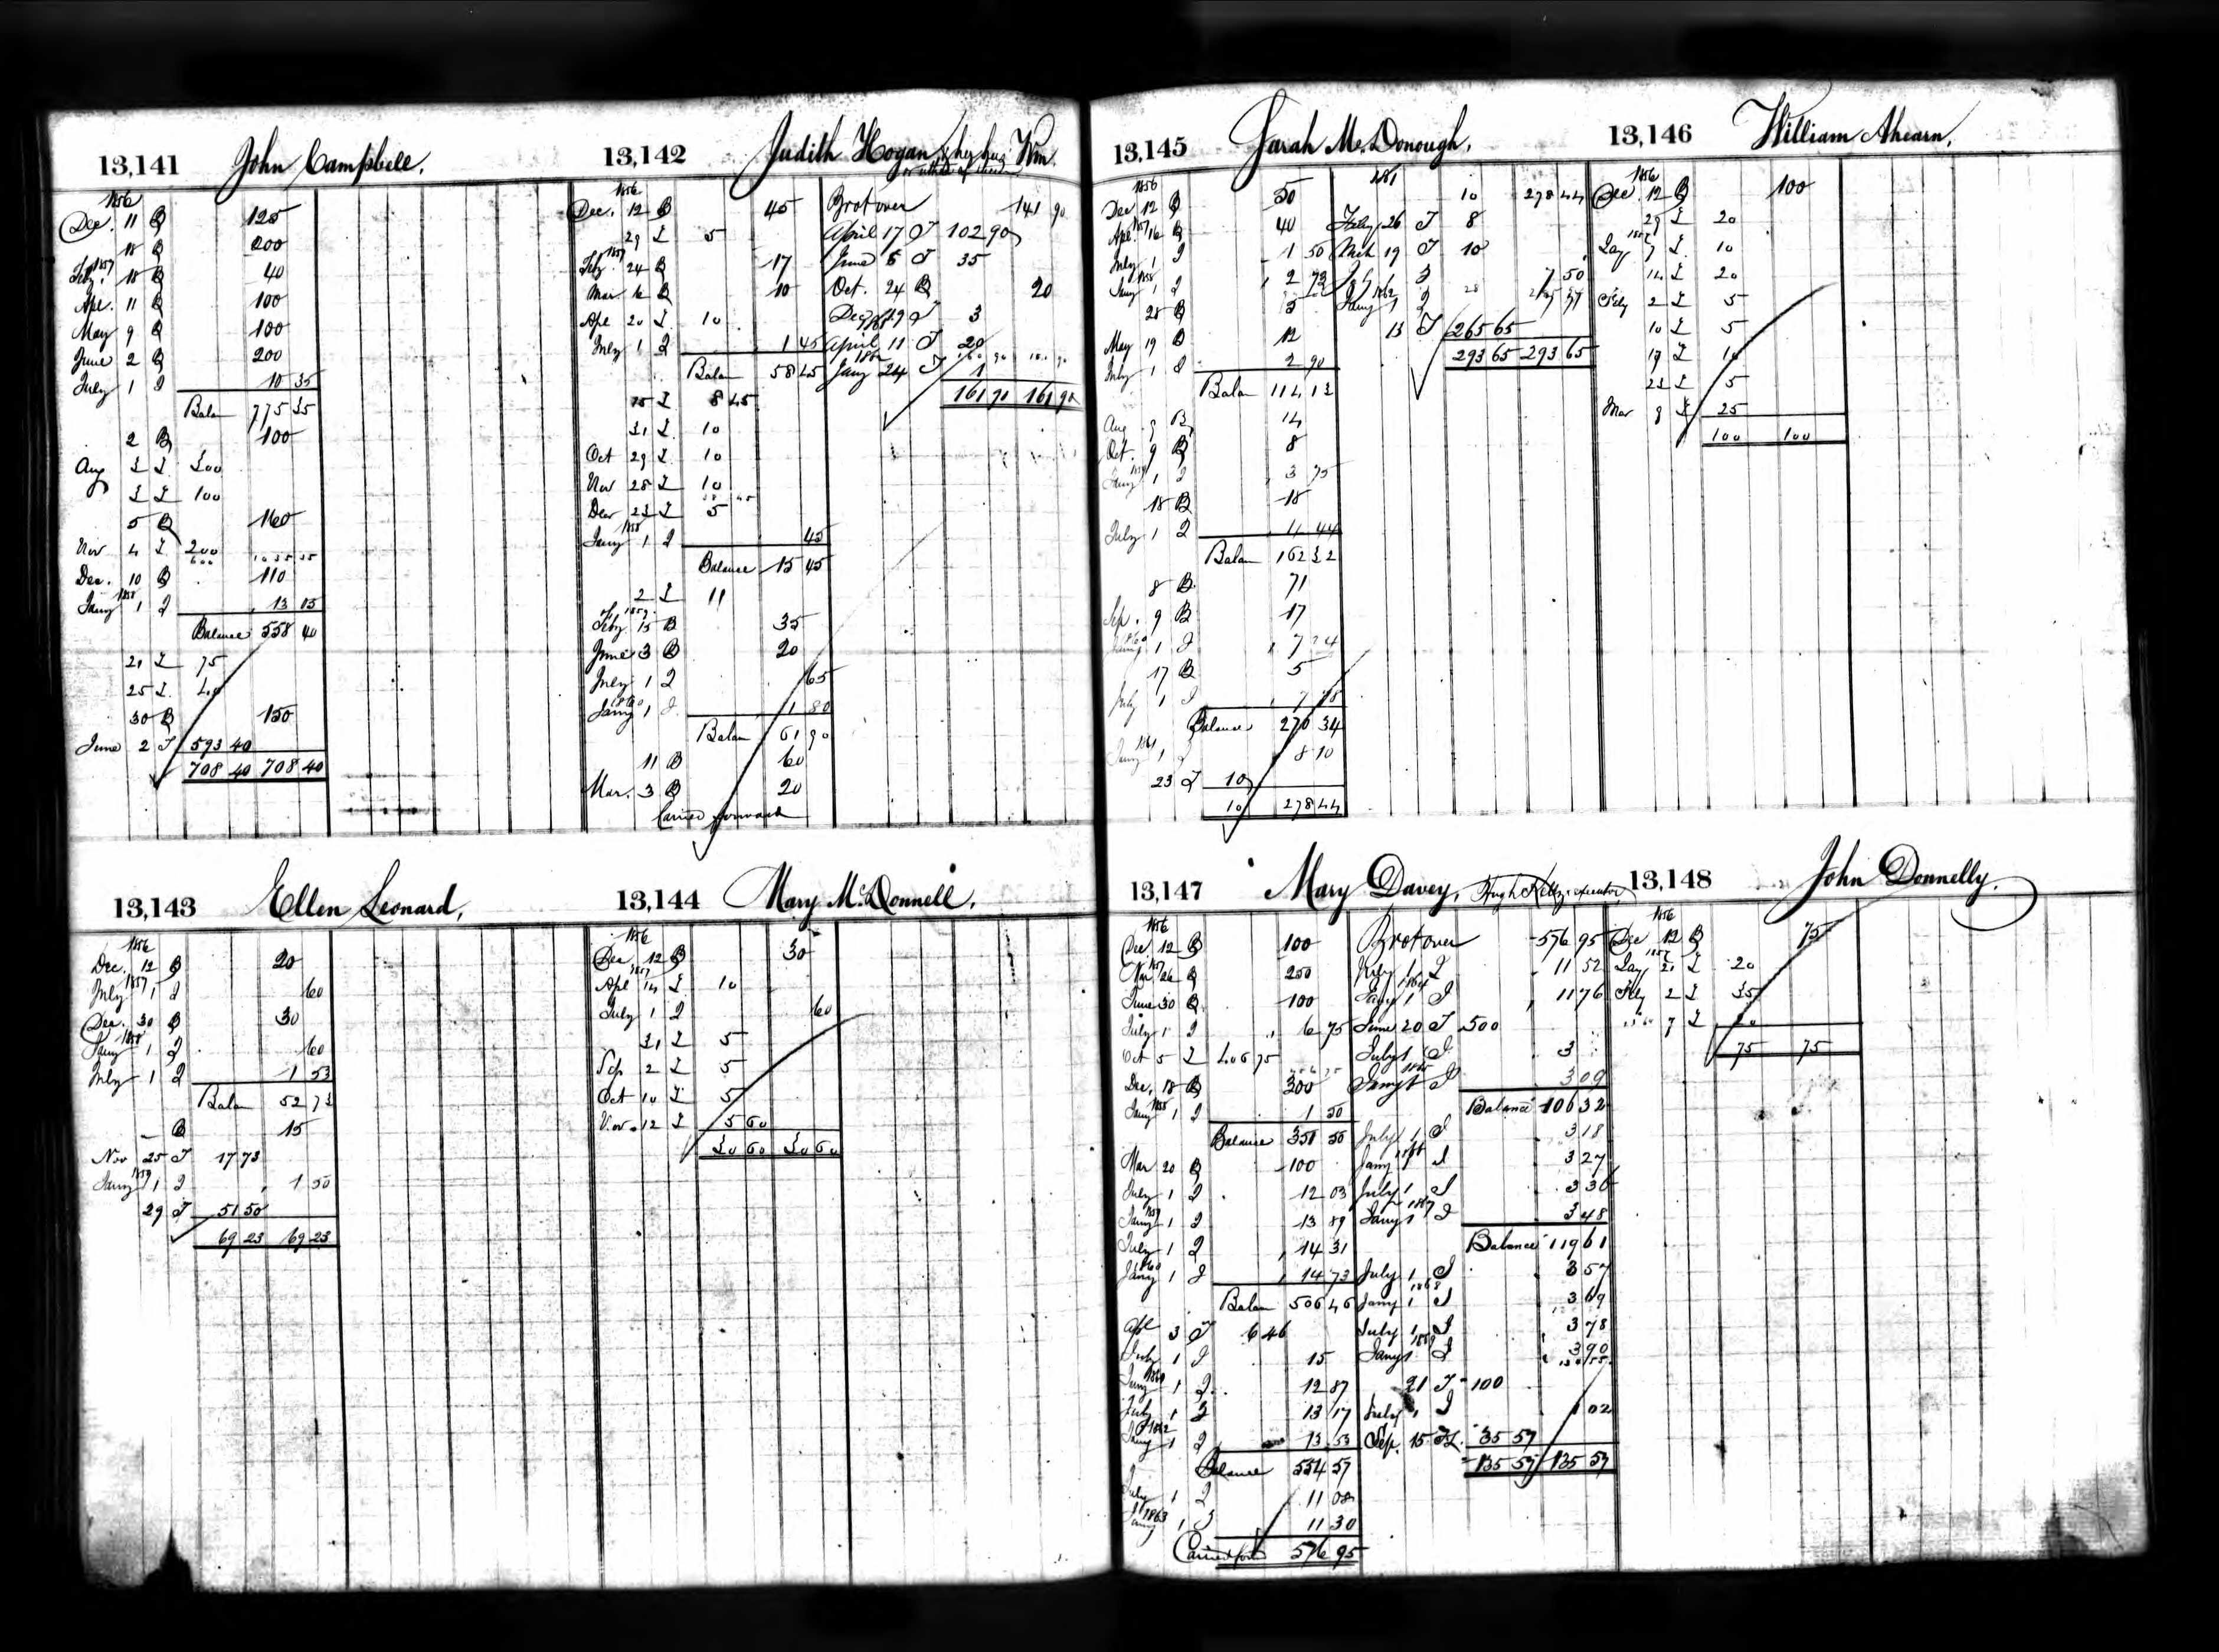 13,141 John Campbell.
1856
Dec. 11 B 125
18 B 200
Feby. 1857 18 B 40
Apl. 11 B 100
May 9 B 100
June 2 B 200
July 1 I 10 35
Balan 775 35
2 B 100
Aug 3 I 300
3 I 100
5 B 160
Nov 4 I 200
600 1035 35
Dec. 10 B 110
Jany 1858 1 I 13 05
Balance 558 40
21 I 75
25 I 40
30 B 150
June 2 I 593 40
708 40 708 40
13,142 Judith Hogan, Wm
1856
Dec. 12 B 45
29 I 5
1857
Feby. 24 B 17
Mar. 16 B 10
Apl 20 I 10
July 1 I 1 45
Balan 58 45
15 I 8 45
31 I 10
Oct 29 I 10
Nov 25 I 10
38 45
Decr 23 I 5
Jany 1858 1 I 45
Balance 15 45
2 I 11
1859
Feby 15 B 35
June 3 B 20
July 1 I 65
Jany 1860 1 I 1 80
Balan 61 90
11 B 60
Mar. 3 B 20
Carried forward
Brot over 141 90
April 17 I 102 90
June 6 I 35
Oct. 24 B 20
Dec 19 I 3
April 11 I 20
1862
Jany 24 I 1
161 90 161 90
13,143 Ellen Leonard.
1856
Dec. 12 B 20
1857
July 1 I 60
Dec. 30 B 30
1858
Jany 1 I 60
July 1 I 1 53
Balan 52 73
B 15
Nov 25 I 17 73
1859
Jany 1 I 1 50
29 I 51 50
69 23 69 23
13,144 Mary McDonnell.
1856
Dec. 12 B 30
1857
Apl 14 I 10
July 1 I 60
31 I 5
Sep 2 I 5
Oct 10 I 5
Nov. 12 I 5 60
30 60 30 60
13,145 Sarah McDonough.
1856
Dec 12 B 50
1857
Apl. 16 B 40
July 1 I 1 50
1858
Jany 1 I 2 73
28 B 5
May 19 B 12
July 1 I 2 90
Balan 114 13
Aug. 9 B 14
Oct. 9 B 8
1859
Jany 1 I 3 75
18 B 18
July 1 I 4 44
Balan 162 32
8 B 71
Sep. 9 B 17
1860
Jany 1 I 7 24
17 B 5
July 1 I 7 78
Balance 270 34
1861
Jany 1 I 8 10
23 I 10
10 278 44
1861 10 278 44
Feby 26 I 8
Mch 19 I 10
July 1 I 7 50
28
1862
Jany 1 I
13 I 265 65
293 65 293 65
13,146 William Ahearn.
1856
Dec. 12 B 100
29 I 20
1857
Jany 7 I 10
14 I 20
Feby 2 I 5
10 I 5
17 I 10
23 I 5
Mar 8 I 25
100 100
13,147 Mary Davey, Hugh Kelly, executor
1856
Dec. 12 B 100
1857
26 B 250
June 30 B 100
July 1 I 6 75
Oct 5 I 406 75
Dec. 18 B 300
1858
Jany 1 I 1 50
Balance 351 50
Mar 20 B 100
July 1 I 12 03
1859
Jany 1 I 13 89
July 1 I 14 31
1860
Jany 1 I 14 73
Balan 506 46
Apl 3 I 6 46
July 1 I 15
Jany 1 I 12 87
July 1 I 13 17
1862
Jany 1 I 13 53
Balance 554 57
July 1 I 11 08
1863
Jany 1 I 11 30
Carried for 576 95
Brot over 576 95
July 1 I 11 52
1864
Jany 1 I 11 76
June 20 I 500
July 1 I 3
1865
Jany 1 I 3 09
Balance 106 32
July 1 I 3 18
1866
Jany 1 I 3 27
July 1 I 3 36
1867
Jany 1 I 3 48
Balance 119 61
July 1 I 3 57
1868
Jany 1 I 3 69
July 1 I 3 78
1869
Jany 1 I 3 90
134 55
21 I 100
July 1 I 1 02
Sep. 15 35 57
135 57 135 57
13,148 John Donnelly.
1856
Dec 12 B 75
1857
Jany 21 I 20
Feby 2 I 35
7 I 20
75 75